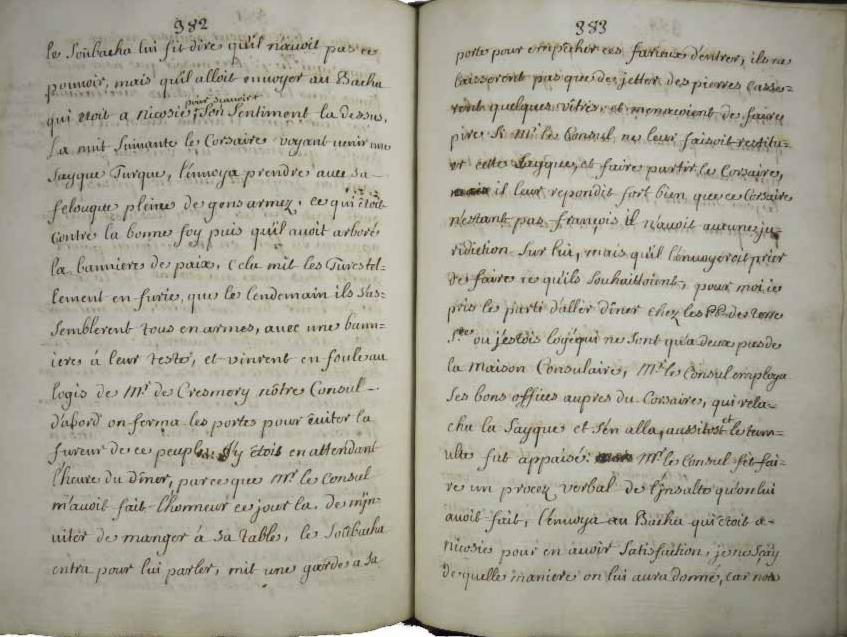 382
le Soûbacha lui fit dire qu'il n'auoit pas ce
pouuoir, mais qu'il alloit enuoyer au Bacha
qui etoit a nicosie pour scauoir Son Sentiment la dessus.
La nuit Suiuante le Corsaire voyant uenir une
Sayque Turque, l'enuoya prendre auec sa
felouque pleine de gens armez, ce qui êtoit
Contre la bonne foy puis qu'il auoit arboré
la banniere de paix, Cela mit les Turcs tel-
lement en furie, que le lendemain ils s'as-
Semblerent tous en armes, auec une bann-
iere à leur teste, et vinrent en foule au
logis de Mr. de Cresmery nôtre Consul
d'abord on ferma les portes pour êuiter la
fureur de ce peuple j'y êtois en attendant
l'heure du dîner, parce que Mr. le Consul
m'auoit fait l'honneur ce jour la de m'jn-
uiter de manger á sa table, le Soûbacha
entra pour lui parler, mit une garde a sa
383
porte pour empêcher ces furieux d'entrer, ils ne
laisserent pas que de jetter des pierres casse-
rent quelques vîtres, et menaçoient de faire
pire Si Mr. le Consul ne leur faisoit restitu-
er cette Sayque, et faire partir le Corsaire,
il leur repondit fort bien que ce Corsaire
n'estant pas françois il n'auoit aucune ju-
ridiction Sur lui, mais qu'il l'enuoyeroit prier
de faire ce qu'ils Souhaittoient, pour moi, ie
pris le parti d'aller dîner chez les PP. de terre
Ste. ou j'estois logé qui ne Sont qu'a deux pas de
la maison Consulaire, Mr. le Consul employa
Ses bons offices aupres du Corsaire, qui rela-
cha la Sayque et s'en alla, aussitost et le tum-
ulte fut appaisé. Mr. le Consul fit fai-
re un procez verbal de l'jnsulte qu'on lui
auoit fait, l'enuoya au Bacha qui êtoit a
nicosie pour en auoir Satisfaction, je ne Scay
de quelle maniere on lui aura donné, car nos